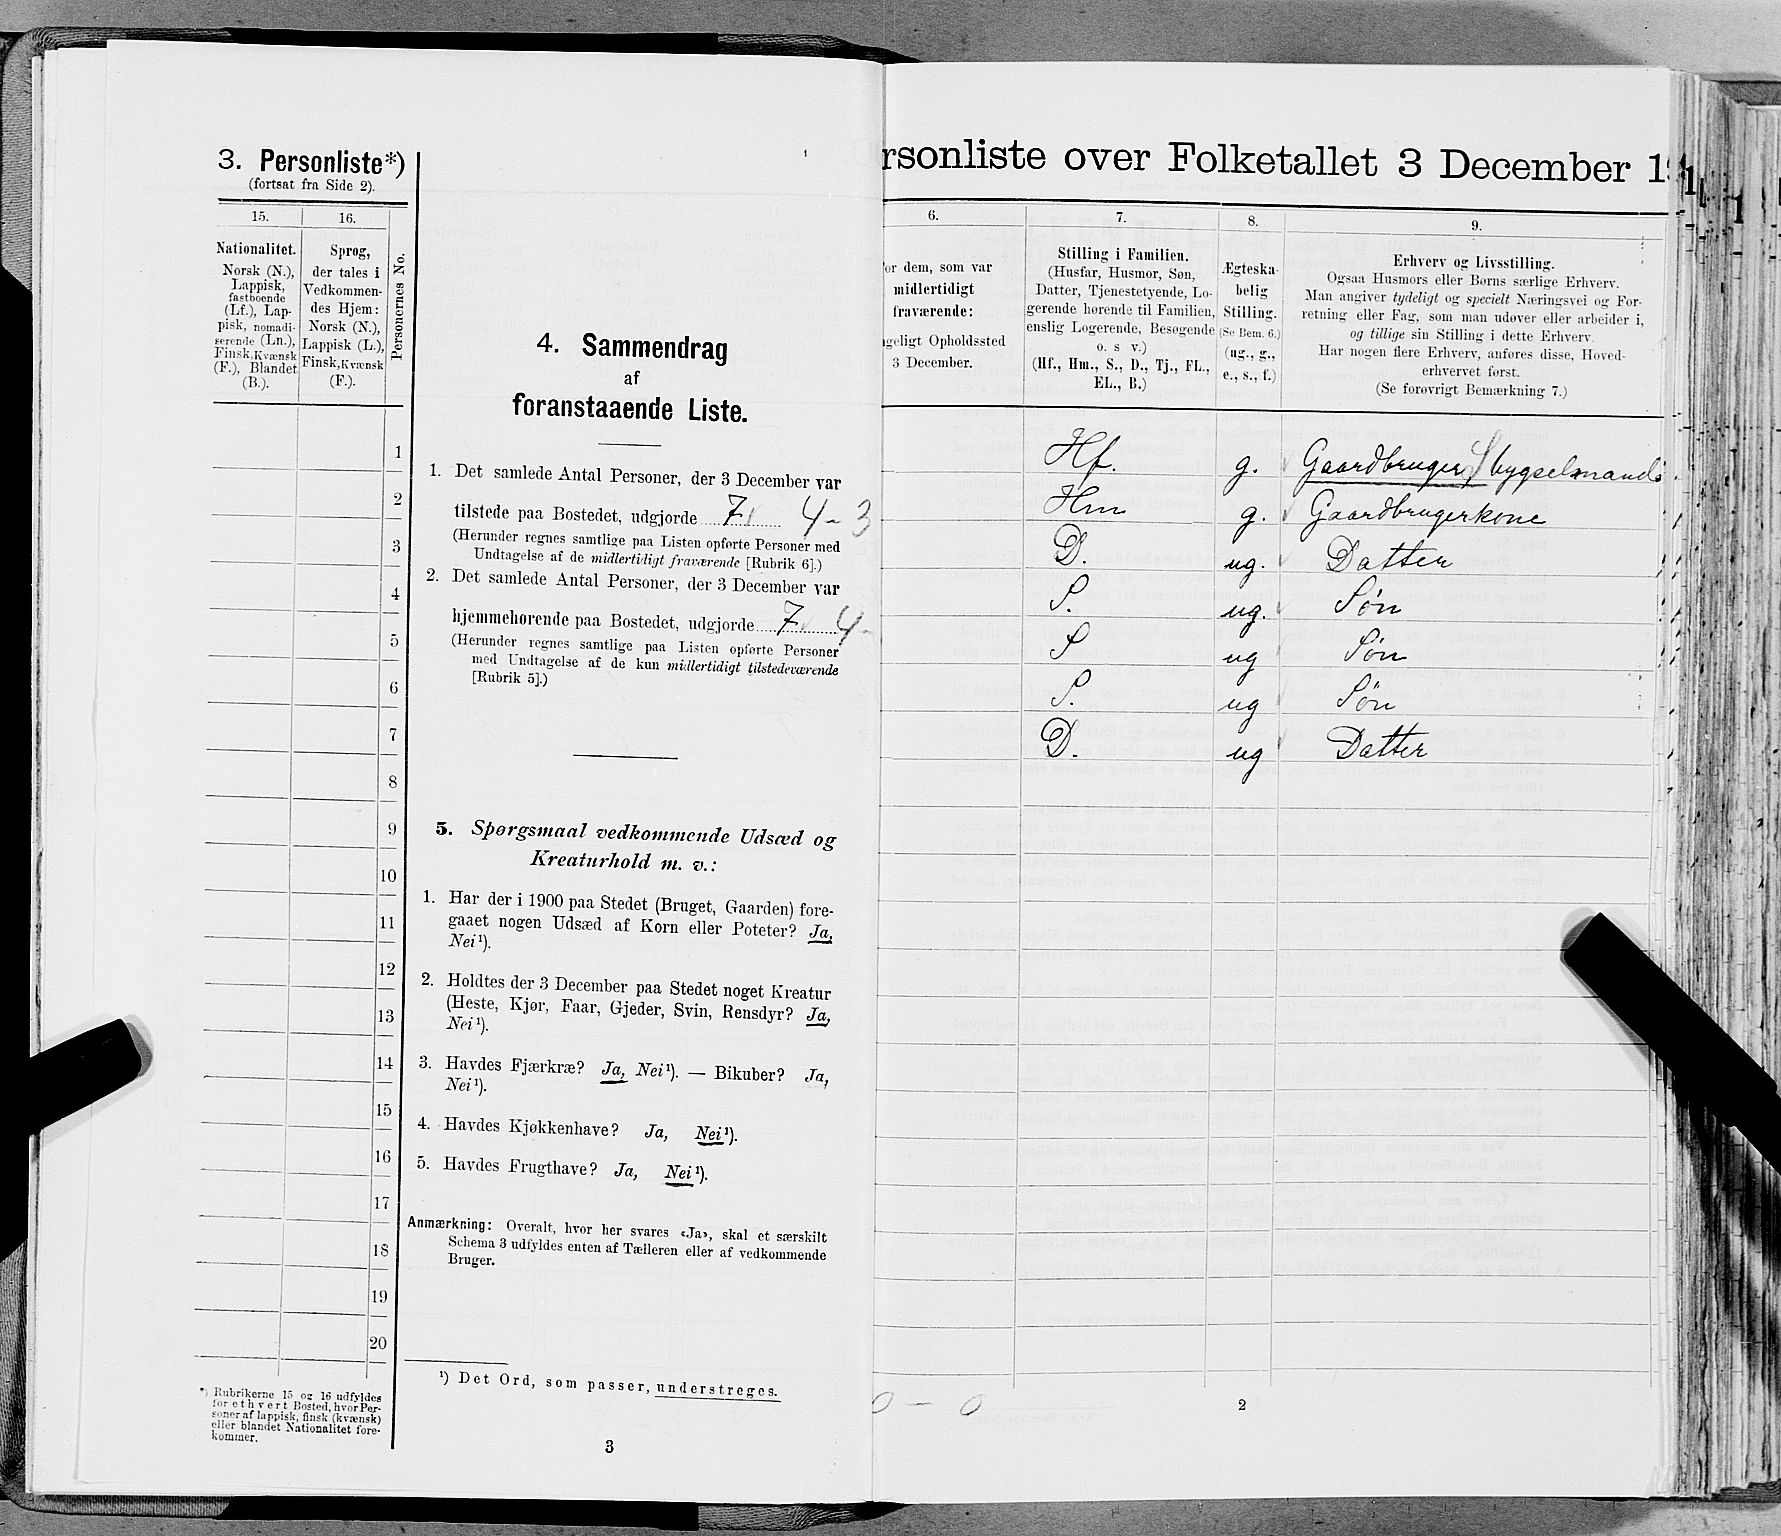 3. Personliste*)
(fortsat fra Side 2).
15.
16.
Personernes No.
Nationalitet.
Norsk (N.),
Lappisk,
fastboende
(Lf.), Lap-
pisk, nomadi-
serende (Ln.),
Finsk, Kvænsk
(F.), Blandet
(B.).
Sprog,
der tales i
Vedkommen-
des Hjem:
Norsk (N.),
Lappisk (L.),
Finsk, Kvænsk
(F.).
1
2
3
4
5
6
7
8
9
10
11
12
13
14
15
16
17
18
19
20
*) Rubrikerne 15 og 16 udfyldes
for ethvert Bosted, hvor Per-
soner af lappisk, finsk (kvænsk)
eller blandet Nationalitet fore-
kommer.
4. Sammendrag
af
foranstaaende Liste.
1. Det samlede Antal Personer, der 3 December var
tilstede paa Bostedet, udgjorde 7 4-3
(Herunder regnes samtlige paa Listen opførte Personer med
Undtagelse af de midlertidigt fraværende [Rubrik 6].)
2. Det samlede Antal Personer, der 3 December var
hjemmehørende paa Bostedet, udgjorde 7 4-
(Herunder regnes samtlige paa Listen opførte Personer
med Undtagelse af de kun midlertidigt tilstedeværende
[Rubrik 5].)
5. Spørgsmaal vedkommende Udsæd og
Kreaturhold m. v.:
1. Har der i 1900 paa Stedet (Bruget, Gaarden) fore-
gaaet nogen Udsæd af Korn eller Poteter? Ja,
Nei¹).
2. Holdtes der 3 December paa Stedet noget Kreatur
(Heste, Kjør, Faar, Gjeder, Svin, Rensdyr? Ja,
Nei¹).
3. Havdes Fjærkræ? Ja, Nei¹). — Bikuber? Ja,
Nei¹).
4. Havdes Kjøkkenhave? Ja, Nei¹).
5. Havdes Frugthave? Ja, Nei¹).
Anmærkning: Overalt, hvor her svares «Ja», skal et særskilt
Schema 3 udfyldes enten af Tælleren eller af vedkommende
Bruger.
¹) Det Ord, som passer, understreges.
3
rsonliste over Folketallet 3 December 1
6.
7.
8.
9.
or dem, som var
midlertidigt
fraværende:
geligt Opholdssted
3 December.
Stilling i Familien.
(Husfar, Husmor, Søn,
Datter, Tjenestetyende, Lo-
gerende hørende til Familien,
enslig Logerende, Besøgende
o. s v.)
(Hf., Hm., S., D., Tj., FL.,
EL., B.)
Ægteska-
belig
Stilling.
(Se Bem. 6.)
(ug., g.,
e., s., f.)
Erhverv og Livsstilling.
Ogsaa Husmors eller Børns særlige Erhverv.
Man angiver tydeligt og specielt Næringsvei og For-
retning eller Fag, som man udøver eller arbeider i,
og tillige sin Stilling i dette Erhverv.
Har nogen flere Erhverv, anføres disse, Hoved-
erhvervet først.
(Se forøvrigt Bemærkning 7.)
Hf. g. Gaardbruger bygselmand
Hm g. Gaardbrugerkone
D. ug. Datter
S. ug. Søn
S ug Søn
S. ug Søn
D. ug Datter
0 – 0
2